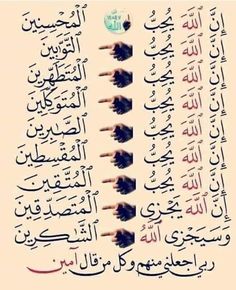 إِنَّ ٱللَّهَ يُحِبُّ ٱلْمُحْسِنِينَ
إِنَّ ٱللَّهَ يُحِبُّ ٱلتَّوَّابِينَ
إِنَّ ٱللَّهَ يُحِبُّ ٱلْمُتَطَهِّرِينَ
إِنَّ ٱللَّهَ يُحِبُّ ٱلْمُتَوَكِّلِينَ
إِنَّ ٱللَّهَ يُحِبُّ ٱلصَّٰبِرِينَ
إِنَّ ٱللَّهَ يُحِبُّ ٱلْمُقْسِطِينَ
إِنَّ ٱللَّهَ يُحِبُّ ٱلْمُتَّقِينَ
إِنَّ ٱللَّهَ يَجْزِى ٱلْمُتَصَدِّقِينَ
وَسَيَجْزِى ٱللَّهُ ٱلشَّٰكِرِينَ
ربي اجعلني منهم وكل من قال آمين